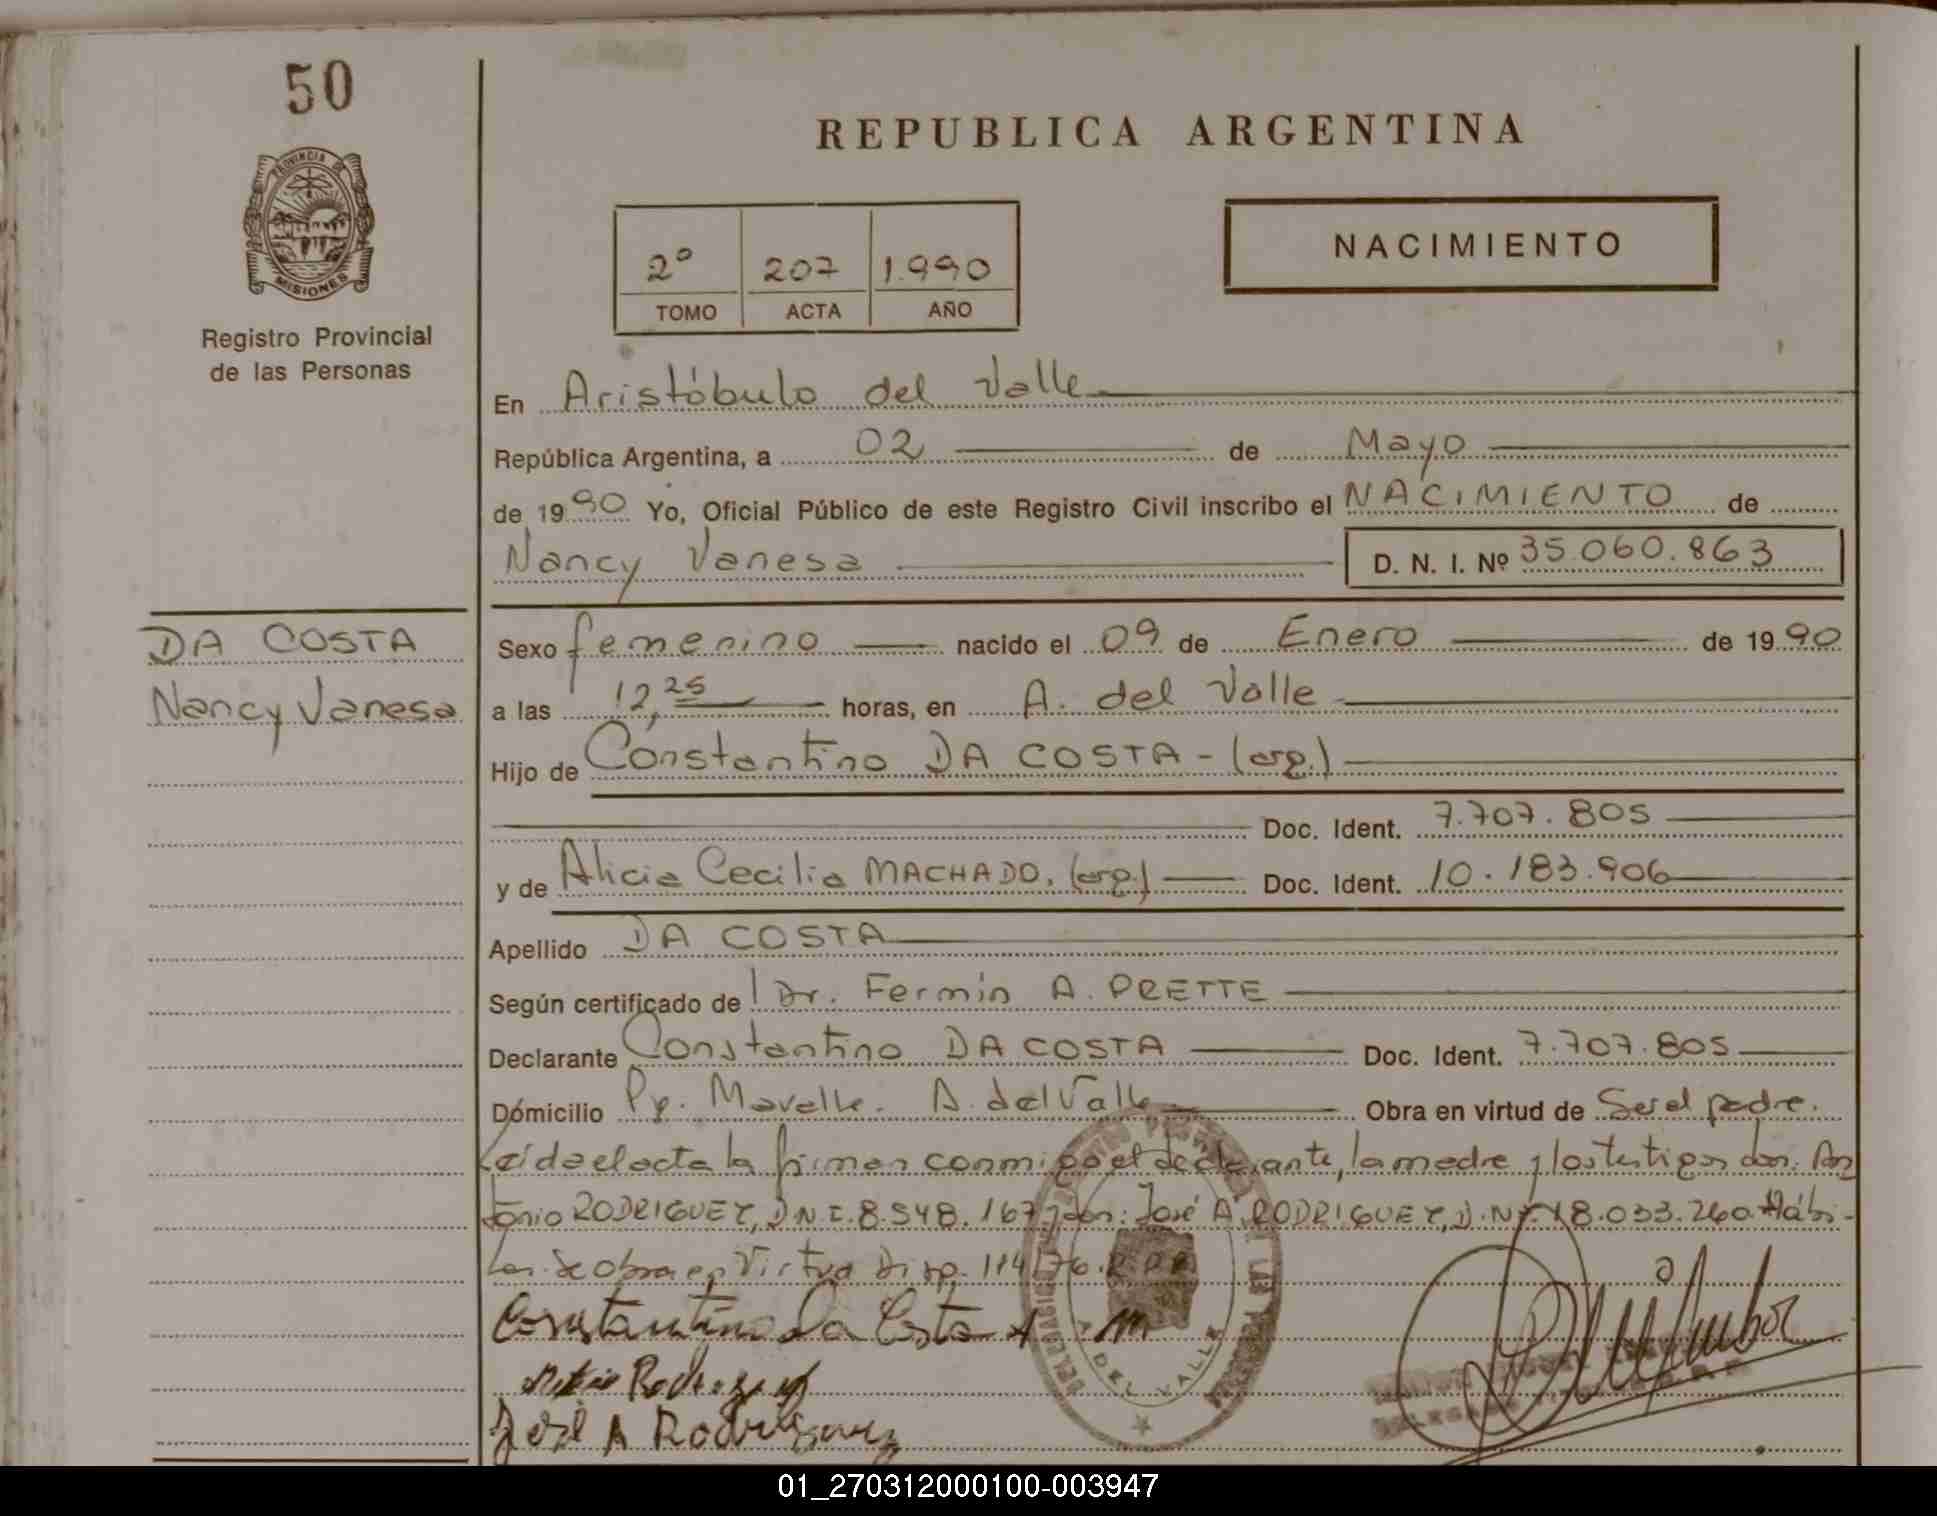 50
REPUBLICA ARGENTINA
PROVINCIA DE
MISIONES
Registro Provincial
de las Personas
2º 207 1.990
TOMO ACTA AÑO
NACIMIENTO
En Aristóbulo del Valle
República Argentina, a 02 de Mayo
de 1990 Yo, Oficial Público de este Registro Civil inscribo el NACIMIENTO de
Nancy Vanesa D. N. I. Nº 35.060.863
DA COSTA
Nancy Vanesa
Sexo femenino nacido el 09 de Enero de 1990
a las 12,25 horas, en A. del Valle
Hijo de Constantino DA COSTA - (arg.)
Doc. Ident. 7.707.805
y de Alicia Cecilia MACHADO. (arg.) Doc. Ident. 10.183.906
Apellido DA COSTA
Según certificado de Dr. Fermín A. PRETTE
Declarante Constantino DA COSTA Doc. Ident. 7.707.805
Domicilio A. del Valle Obra en virtud de Ser el padre.
Leida el acta la firman conmigo el declarante, la madre y los testigos don: An
tonio RODRIGUEZ, D.N.I. 8.548.167 y don: José A. RODRIGUEZ, D.N.I. 18.033.260 Hábi-
les. Se obra en Virtud Disp. 114/76.
Constantino Da Costa
Rodriguez
José A Rodriguez
DEL VALLE
01_270312000100-003947